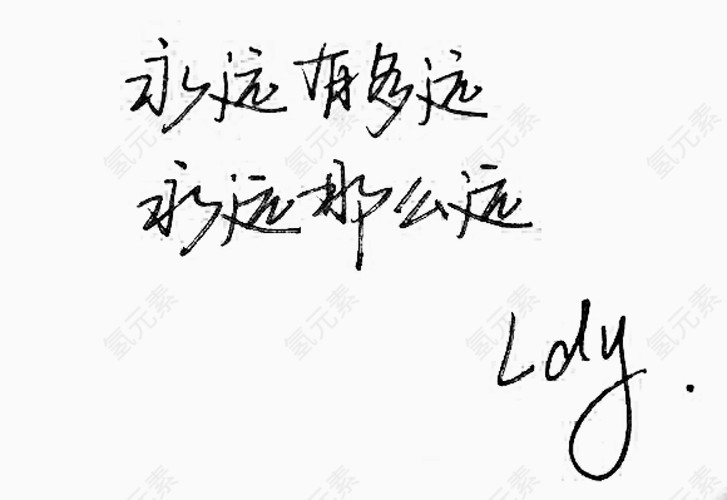 永远有多远
永远那么远
Ldy.
氢元素 氢元素 氢元素 氢元素
氢元素 氢元素 氢元素 氢元素
氢元素 氢元素 氢元素 氢元素